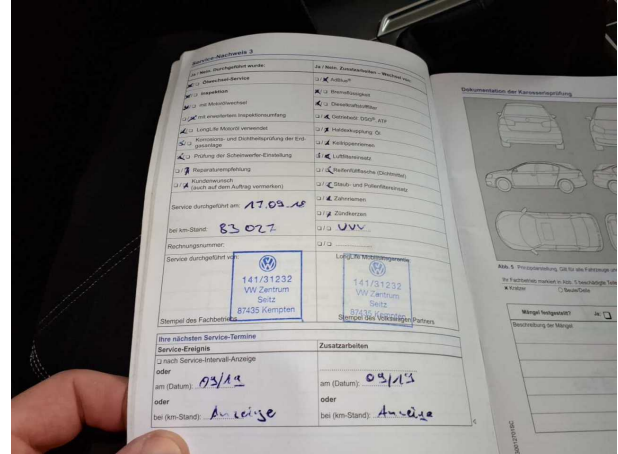 Service-Nachweis 3
Ja / Nein. Durchgeführt wurde:
Ölwechsel-Service
Inspektion
mit Motorölwechsel
mit erweitertem Inspektionsumfang
LongLife Motoröl verwendet
Korrosions- und Dichtheitsprüfung der Erd-
gasanlage
Prüfung der Scheinwerfer-Einstellung
Reparaturempfehlung
Kundenwunsch
(auch auf dem Auftrag vermerken)
Service durchgeführt am: 17.09.18
bei km-Stand: 83 027
Rechnungsnummer:
Service durchgeführt von:
141/31232
VW Zentrum
Seitz
87435 Kempten
Stempel des Fachbetriebs
Ja / Nein. Zusatzarbeiten – Wechsel von:
AdBlue®
Bremsflüssigkeit
Dieselkraftstofffilter
Getriebeöl: DSG®, ATF
Haldexkupplung: Öl
Keilrippenriemen
Luftfiltereinsatz
Reifenfüllflasche (Dichtmittel)
Staub- und Pollenfiltereinsatz
Zahnriemen
Zündkerzen
LongLife Mobilitätsgarantie
141/31232
VW Zentrum
Seitz
87435 Kempten
Stempel des Volkswagen Partners
Ihre nächsten Service-Termine
Service-Ereignis
nach Service-Intervall-Anzeige
oder
am (Datum): 09/19
oder
bei (km-Stand): Anzeige
Zusatzarbeiten
am (Datum): 09/19
oder
bei (km-Stand): Anzeige
Dokumentation der Karosserieprüfung
Abb. 5 Prinzipdarstellung. Gilt für alle Fahrzeuge
Ihr Fachbetrieb markiert in Abb. 5 beschädigte Teile
Kratzer
Beule/Delle
Mängel festgestellt? Ja:
Beschreibung der Mängel